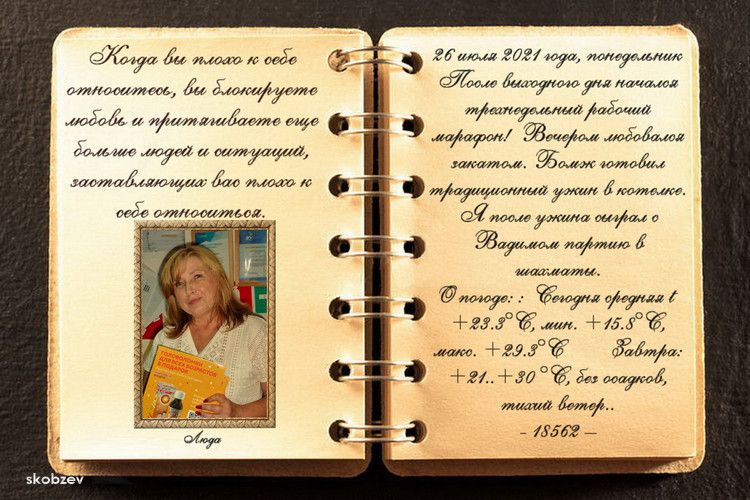 Когда вы плохо к себе
относитесь, вы блокируете
любовь и притягиваете еще
больше людей и ситуаций,
заставляющих вас плохо к
себе относиться.
ГОЛОВОЛОМКИ
ДЛЯ ВСЕХ ВОЗРАСТОВ
В ПОДАРОК
Люда
26 июля 2021 года, понедельник
После выходного дня начался
трехнедельный рабочий
марафон! Вечером любовался
закатом. Бомж готовил
традиционный ужин в котелке.
Я после ужина сыграл с
Вадимом партию в
шахматы.
О погоде: : Сегодня средняя t
+23.3°C, мин. +15.8°C,
макс. +29.3°C Завтра:
+21..+30 °C, без осадков,
тихий ветер..
- 18562 —
skobzev